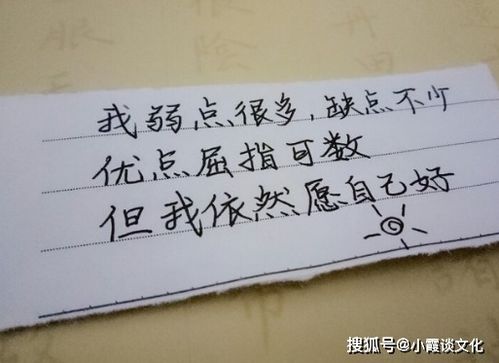 我弱点很多,缺点不少
优点屈指可数
但我依然愿自己好
搜狐号@小霞谈文化